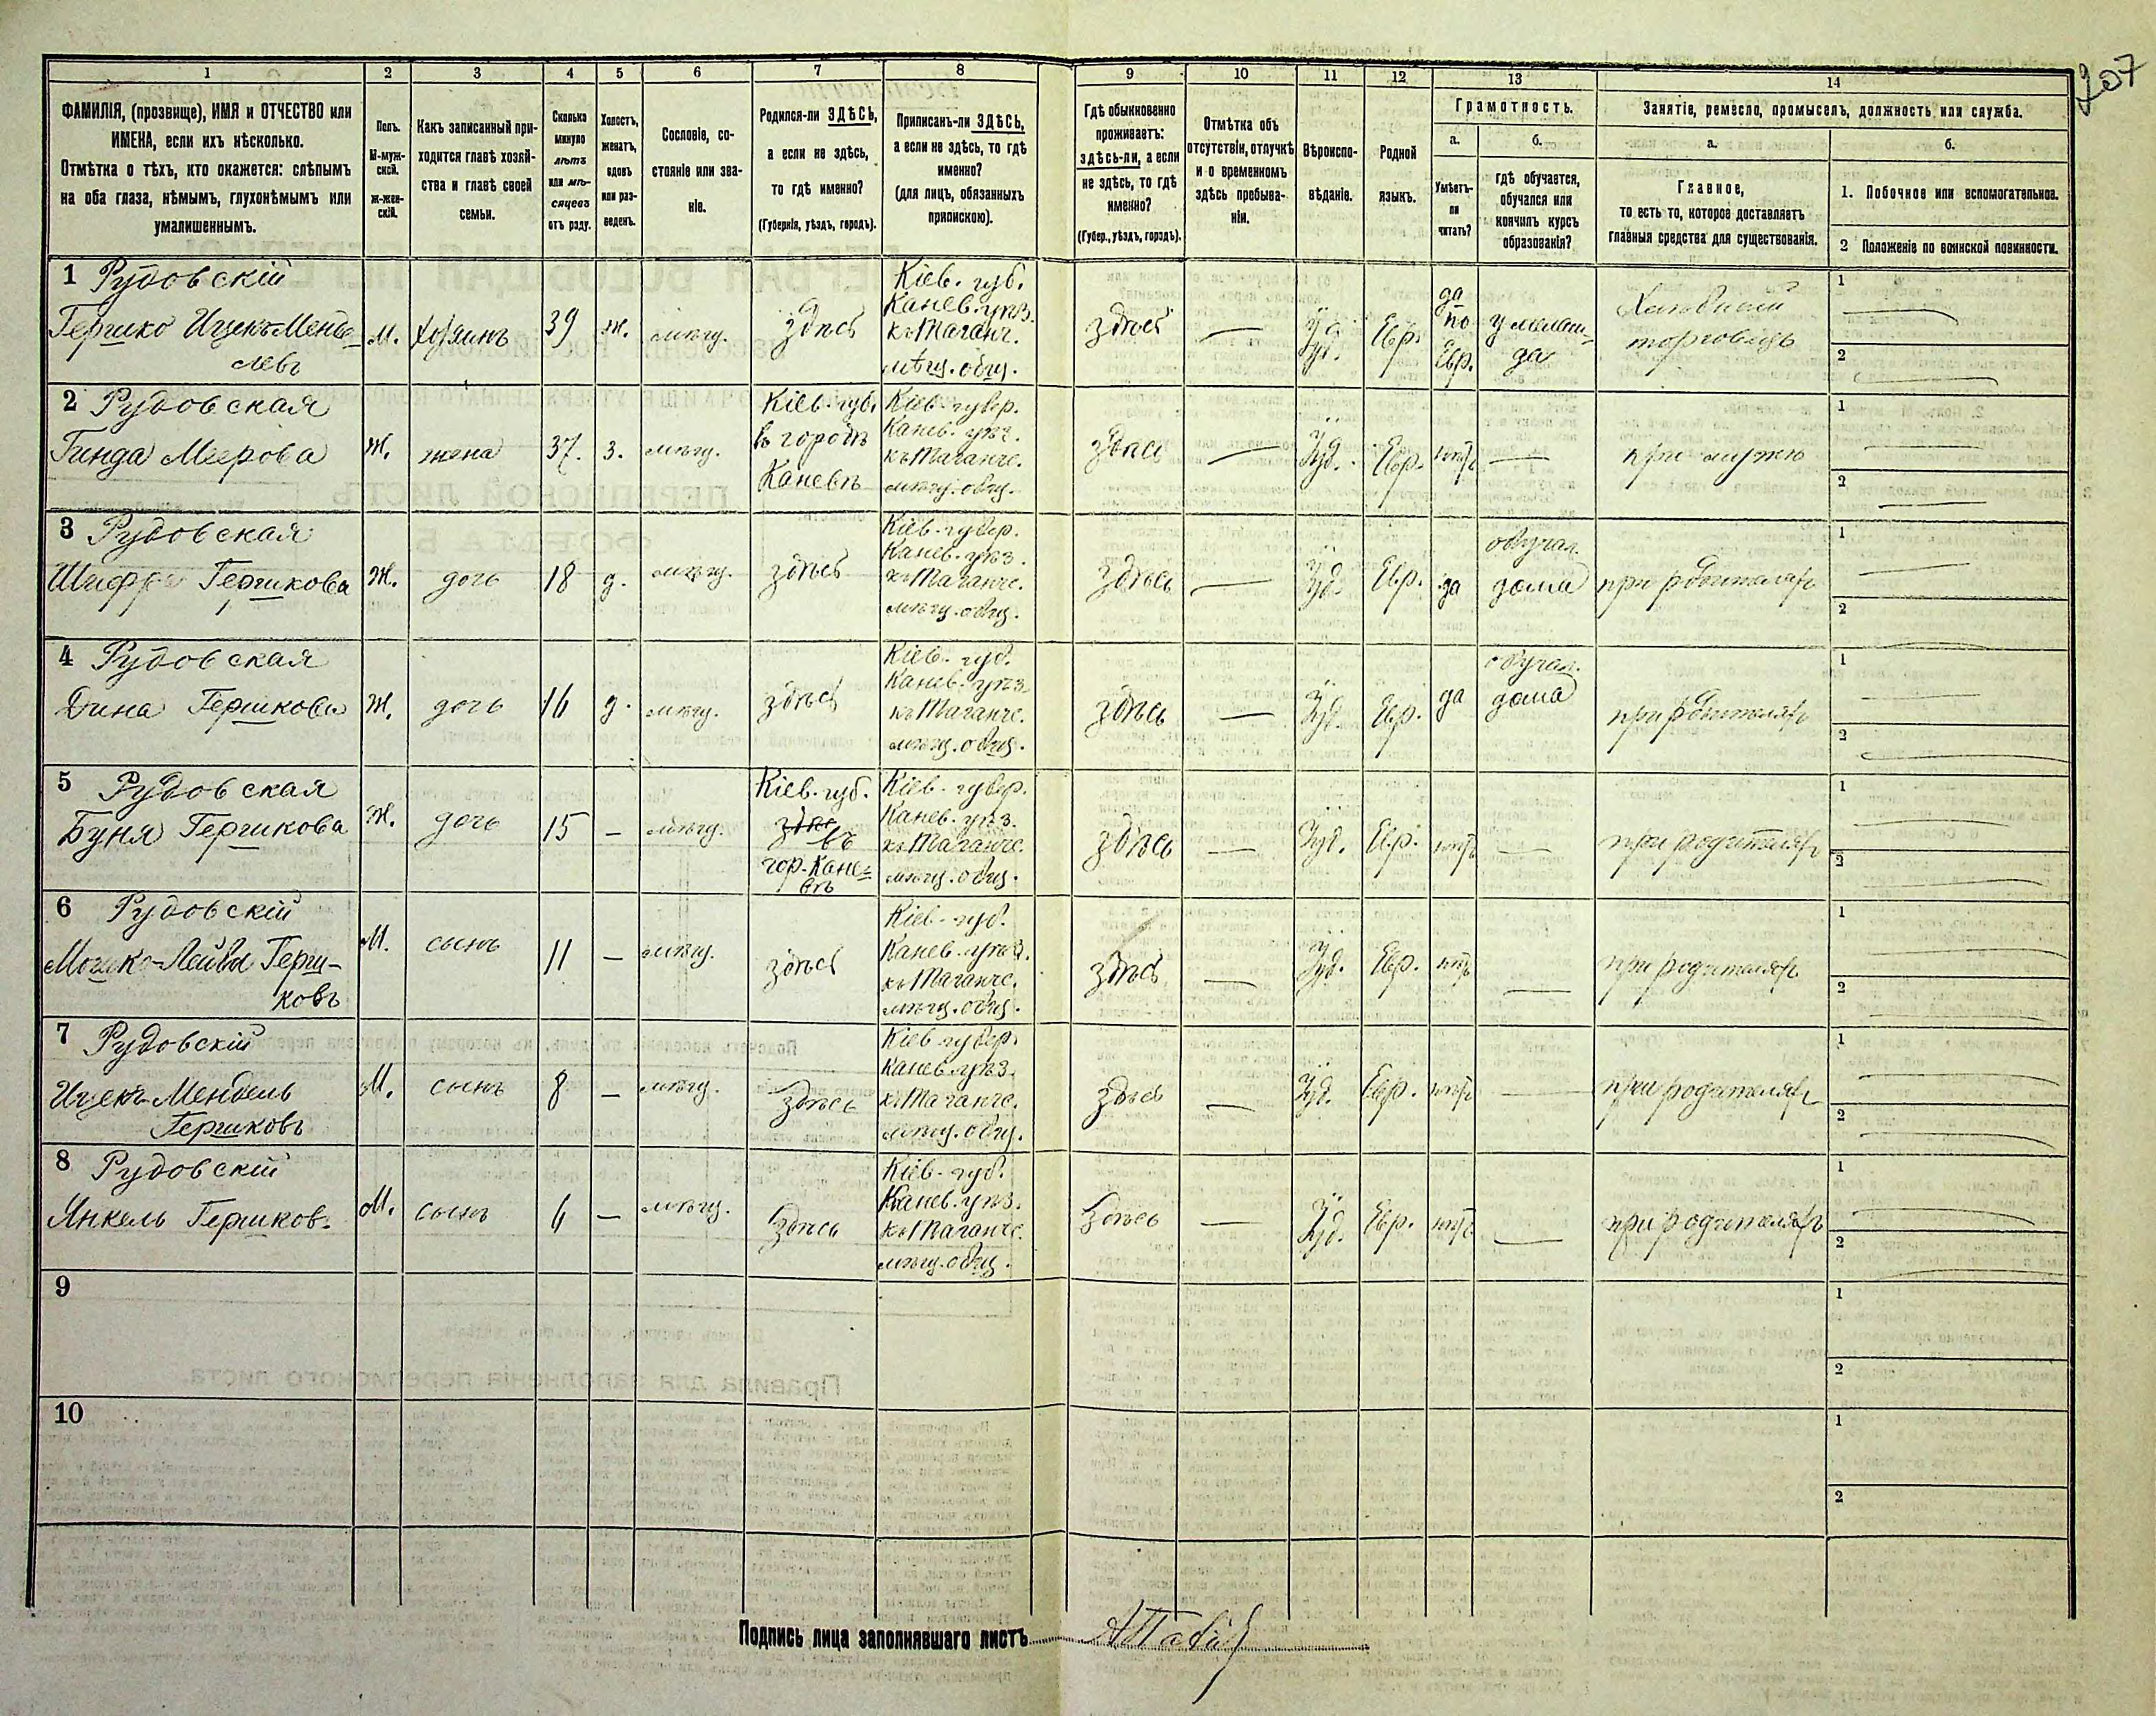 207
1
2
3
4
5
6
7
8
9
10
11
12
13
14
ФАМИЛІЯ, (прозвище), ИМЯ и ОТЧЕСТВО или
ИМЕНА, если ихъ нѣсколько.
Отмѣтка о тѣхъ, кто окажется: слѣпымъ
на оба глаза, нѣмымъ, глухонѣмымъ или
умалишеннымъ.
Полъ.
М-муж-
ской.
ж-жен-
скій.
Какъ записанный при-
ходится главѣ хозяй-
ства и главѣ своей
семьи.
Сколько
минуло
лѣтъ
или мѣ-
сяцевъ
отъ роду.
Холостъ,
женатъ,
вдовъ
или раз-
веденъ.
Сословіе, со-
стояніе или зва-
ніе.
Родился-ли ЗДѢСЬ,
а если не здѣсь,
то гдѣ именно?
(Губернія, уѣздъ, городъ).
Приписанъ-ли ЗДѢСЬ,
а если не здѣсь, то гдѣ
именно?
(для лицъ, обязанныхъ
припискою).
Гдѣ обыкновенно
проживаетъ:
здѣсь-ли, а если
не здѣсь, то гдѣ
именно?
(Губер., уѣздъ, городъ).
Отмѣтка объ
отсутствіи, отлучкѣ
и о временномъ
здѣсь пребыва-
ніи.
Вѣроиспо-
вѣданіе.
Родной
языкъ.
Грамотность.
а.
Умѣетъ-
ли
читать?
б.
гдѣ обучается,
обучался или
кончилъ курсъ
образованія?
Занятіе, ремесло, промыселъ, должность или служба.
а.
Главное,
то есть то, которое доставляетъ
главныя средства для существованія.
б.
1. Побочное или вспомогательное.
2 Положеніе по воинской повинности.
1 Рудовскій
Гершко Ицекъ-Менде-
левъ
м.
хозяинъ
39
ж.
мѣщ.
здѣсь
Кіев. губ.
Канев. уѣз.
къ Таганч.
мѣщ. общ.
здѣсь
—
Іуд.
Евр.
да
по
Евр.
у мелам-
да
Хлѣбный
торговецъ
1
2
2 Рудовская
Гинда Меерова
Ж.
жена
37.
з.
мѣщ.
Кіев. губ.
въ городѣ
Каневѣ
Кіев. губер.
Канев. уѣз.
къ Таганче.
мѣщ. общ.
здѣсь
—
Іуд.
Евр.
нѣтъ
—
при мужѣ
1
2
3 Рудовская
Шифра Гершкова
Ж.
дочь
18
д.
мѣщ.
здѣсь
Кіев. губер.
Канев. уѣз.
къ Таганче.
мѣщ. общ.
здѣсь
—
Іуд.
Евр.
да
обучал.
дома
при родителяхъ
1
2
4 Рудовская
Дина Гершкова
Ж.
дочь
16
д.
мѣщ.
здѣсь
Кіев. губ.
Канев. уѣз.
къ Таганче.
мѣщ. общ.
здѣсь
—
Іуд.
Евр.
да
обучал.
дома
при родителяхъ
1
2
5 Рудовская
Буня Гершкова
Ж.
дочь
15
—
мѣщ.
Кіев. губ.
въ
гор. Кане-
вѣ
Кіев. губер.
Канев. уѣз.
къ Таганче.
мѣщ. общ.
здѣсь
—
Іуд.
Евр.
нѣтъ
—
при родителяхъ
1
2
6 Рудовскій
Мошко-Лейба Герш-
ковъ
М.
сынъ
11
—
мѣщ.
здѣсь
Кіев. губ.
Канев. уѣз.
къ Таганче.
мѣщ. общ.
здѣсь
—
Іуд.
Евр.
нѣтъ
—
при родителяхъ
1
2
7 Рудовскій
Ицекъ-Мендель
Гершковъ
М.
сынъ
8
—
мѣщ.
здѣсь
Кіев. губер.
Канев. уѣз.
къ Таганче.
мѣщ. общ.
здѣсь
—
Іуд.
Евр.
нѣтъ
—
при родителяхъ
1
2
8 Рудовскій
Янкель Гершков.
М.
сынъ
6
—
мѣщ.
здѣсь
Кіев. губ.
Канев. уѣз.
къ Таганче.
мѣщ. общ.
здѣсь
—
Іуд.
Евр.
нѣтъ
—
при родителяхъ
1
2
9
1
2
10
1
2
Подпись лица заполнявшаго листъ